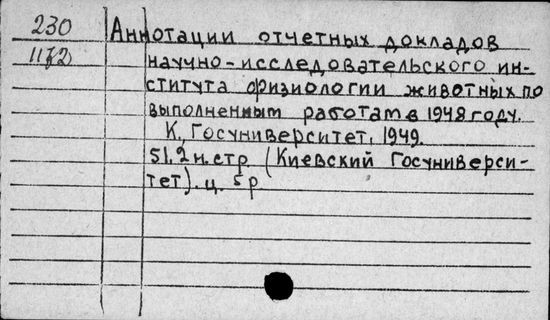 230
1172
Аннотации отчетных докладов
научно-исследовательского ин-
ститута физиологии животных по
выполненным работам в 1948 году.
К, Госуниверситет, 1949.
51.2н.стр. (Киевский Госуниверси-
тет). ц. 5р